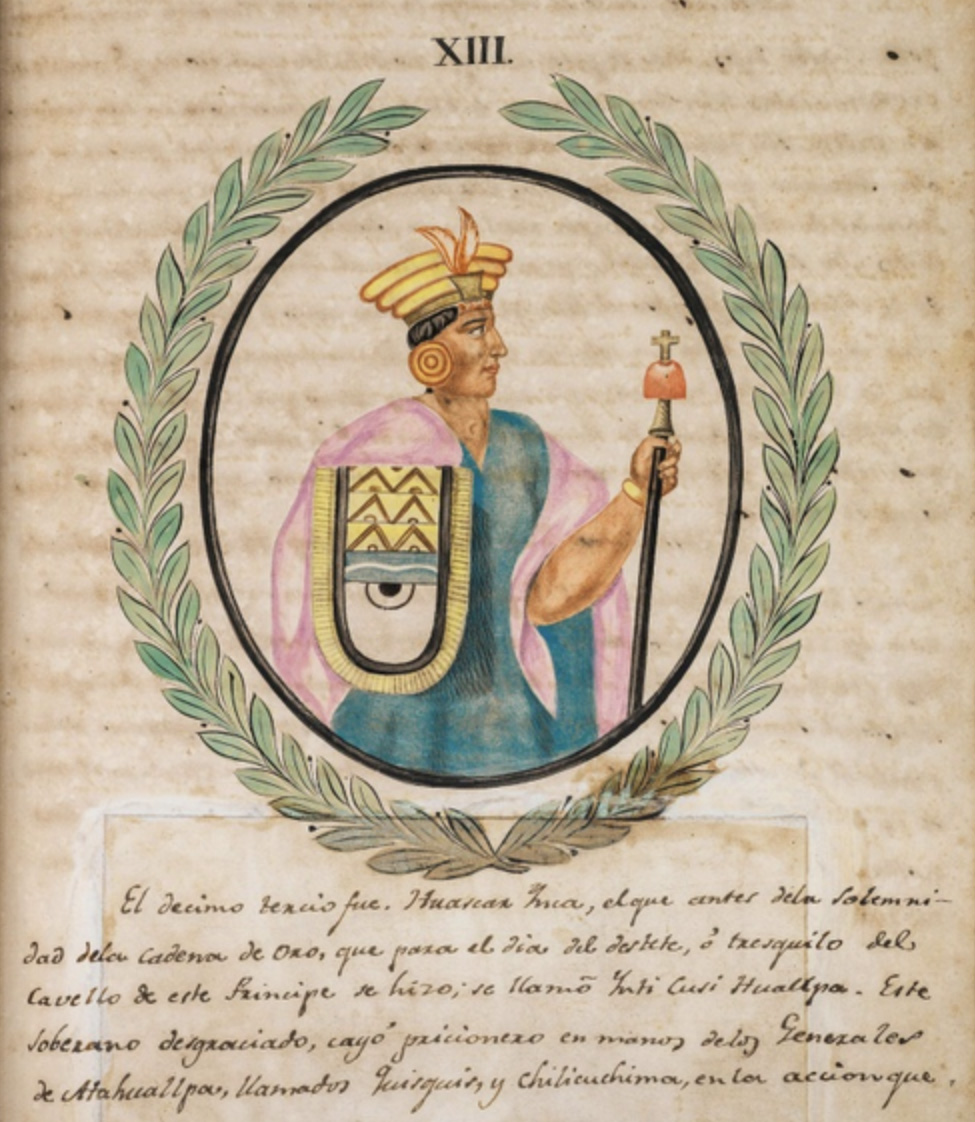 XIII.
El decimo tercio fue. Huascar Ynca, el que antes dela Solemni-
dad dela Cadena de Oro, que para el dia del destete, ó tresquilo del
Cavello de este Principe se hizo; se llamó Ynti Cusi Huallpa. Este
Soberano desgraciado, cayó pricionero en manos delos Generales
de Atahuallpa, llamados Quisquis, y Chilicuchima, en la accion que